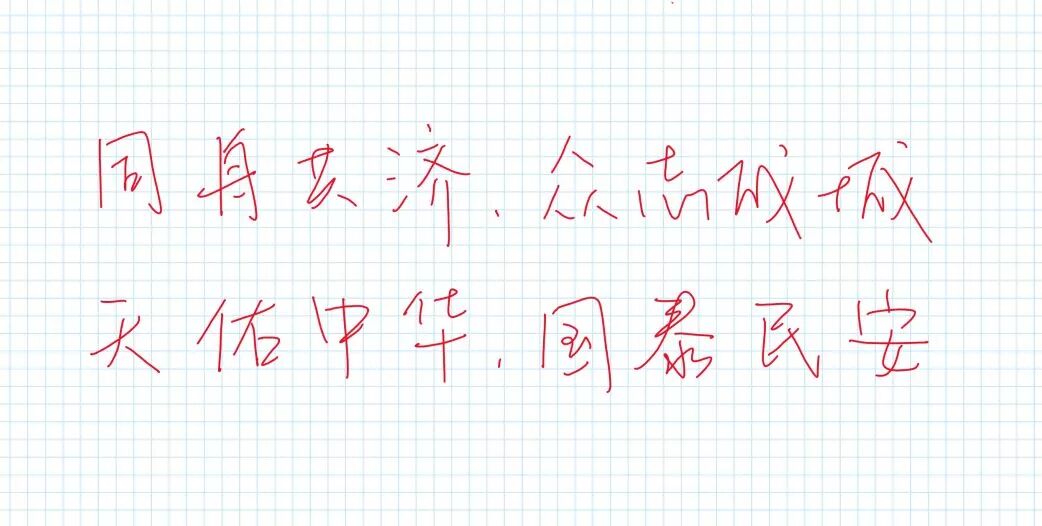 同舟共济，众志成城
天佑中华，国泰民安